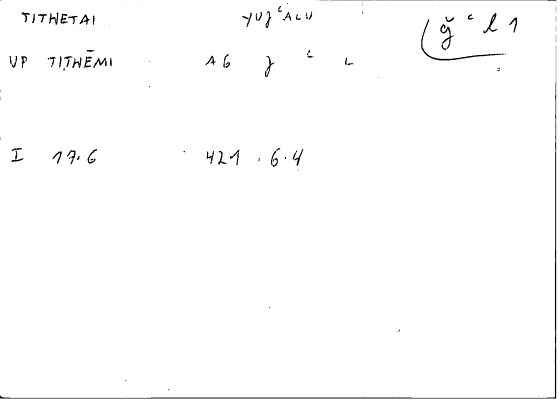 TITHETAI YUJʿALU
ğ ʿ l 1
VP TIṬHĒMI AG J ʿ L
I 17.6 421.6.4